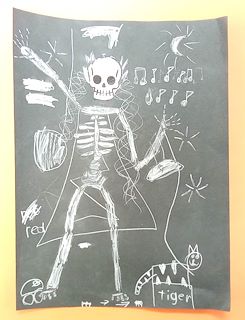 red
tiger